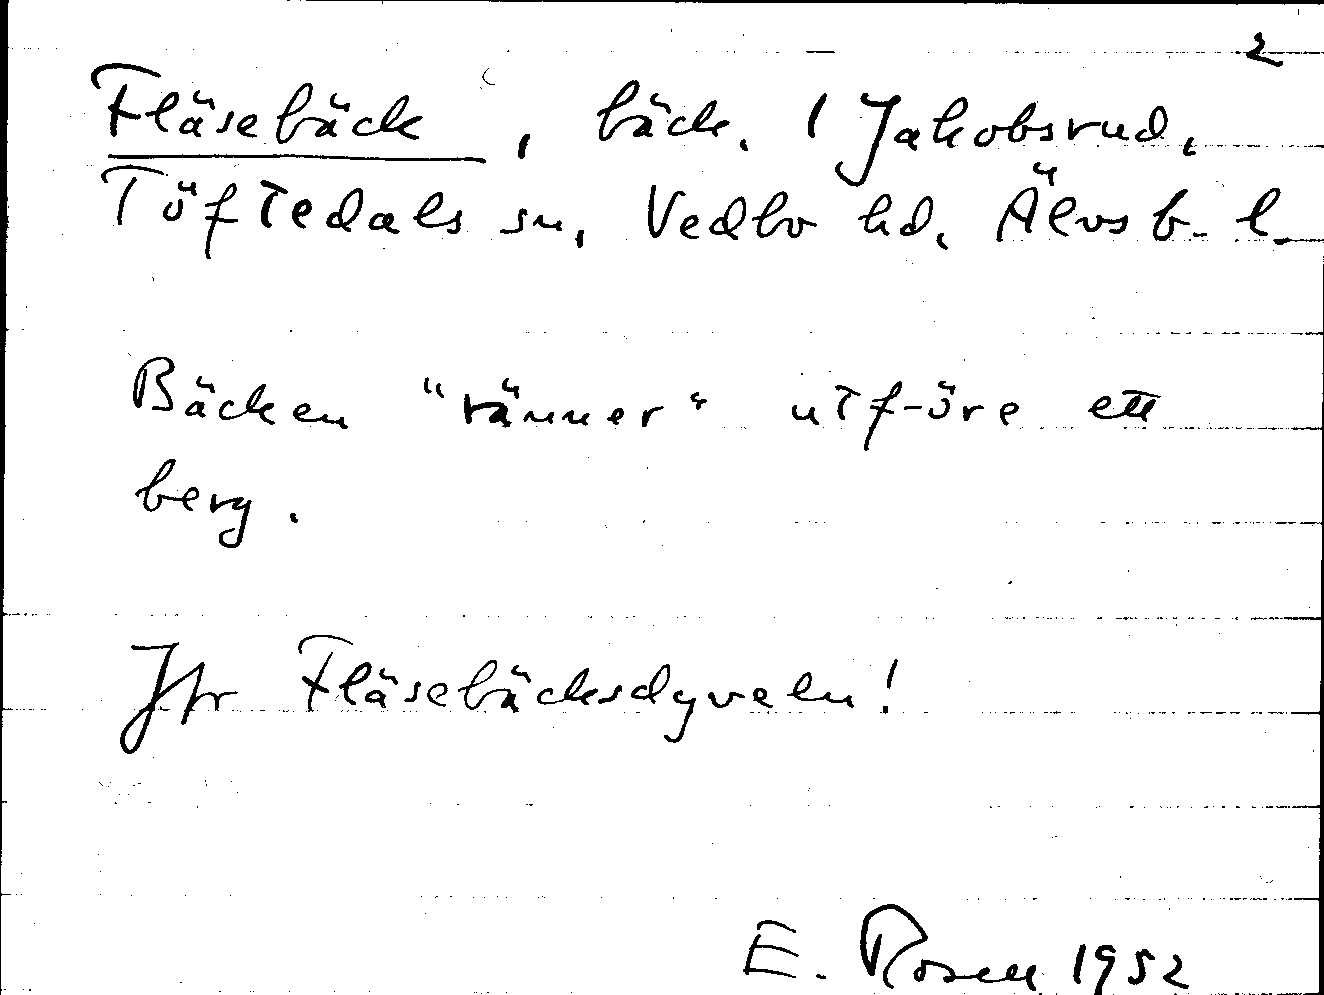 2
Fläsebäck, bäck. / Jakobsrud,
Töftedals sn, Vedbo hd, Älvsb. l.
Bäcken "ränner" utf-öre ett
berg.
Jfr Fläsebäcksdyveln!
E. Rosen 1952